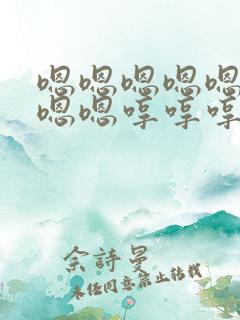 嗯嗯嗯嗯嗯
嗯嗯哼哼哼
余詩曼
未经同意禁止转载